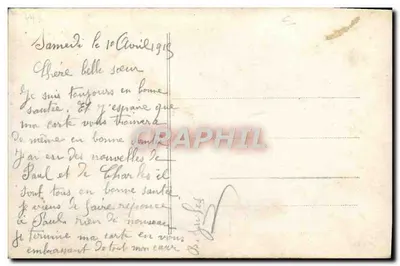 Samedi le 10 Avril 1915
Chère belle sœur
Je suis toujours en bonne
santée. Et j'espère que
ma carte vous trouvera
de même en bonne santé
J'ai eu des nouvelles de
Paul et de Charles il
sont tous en bonne santée
je viens de faire reponce
à Paul rien de nouveau
je termine ma carte en vous
embrassant de tout mon cœur
Jules
CPAPHIL